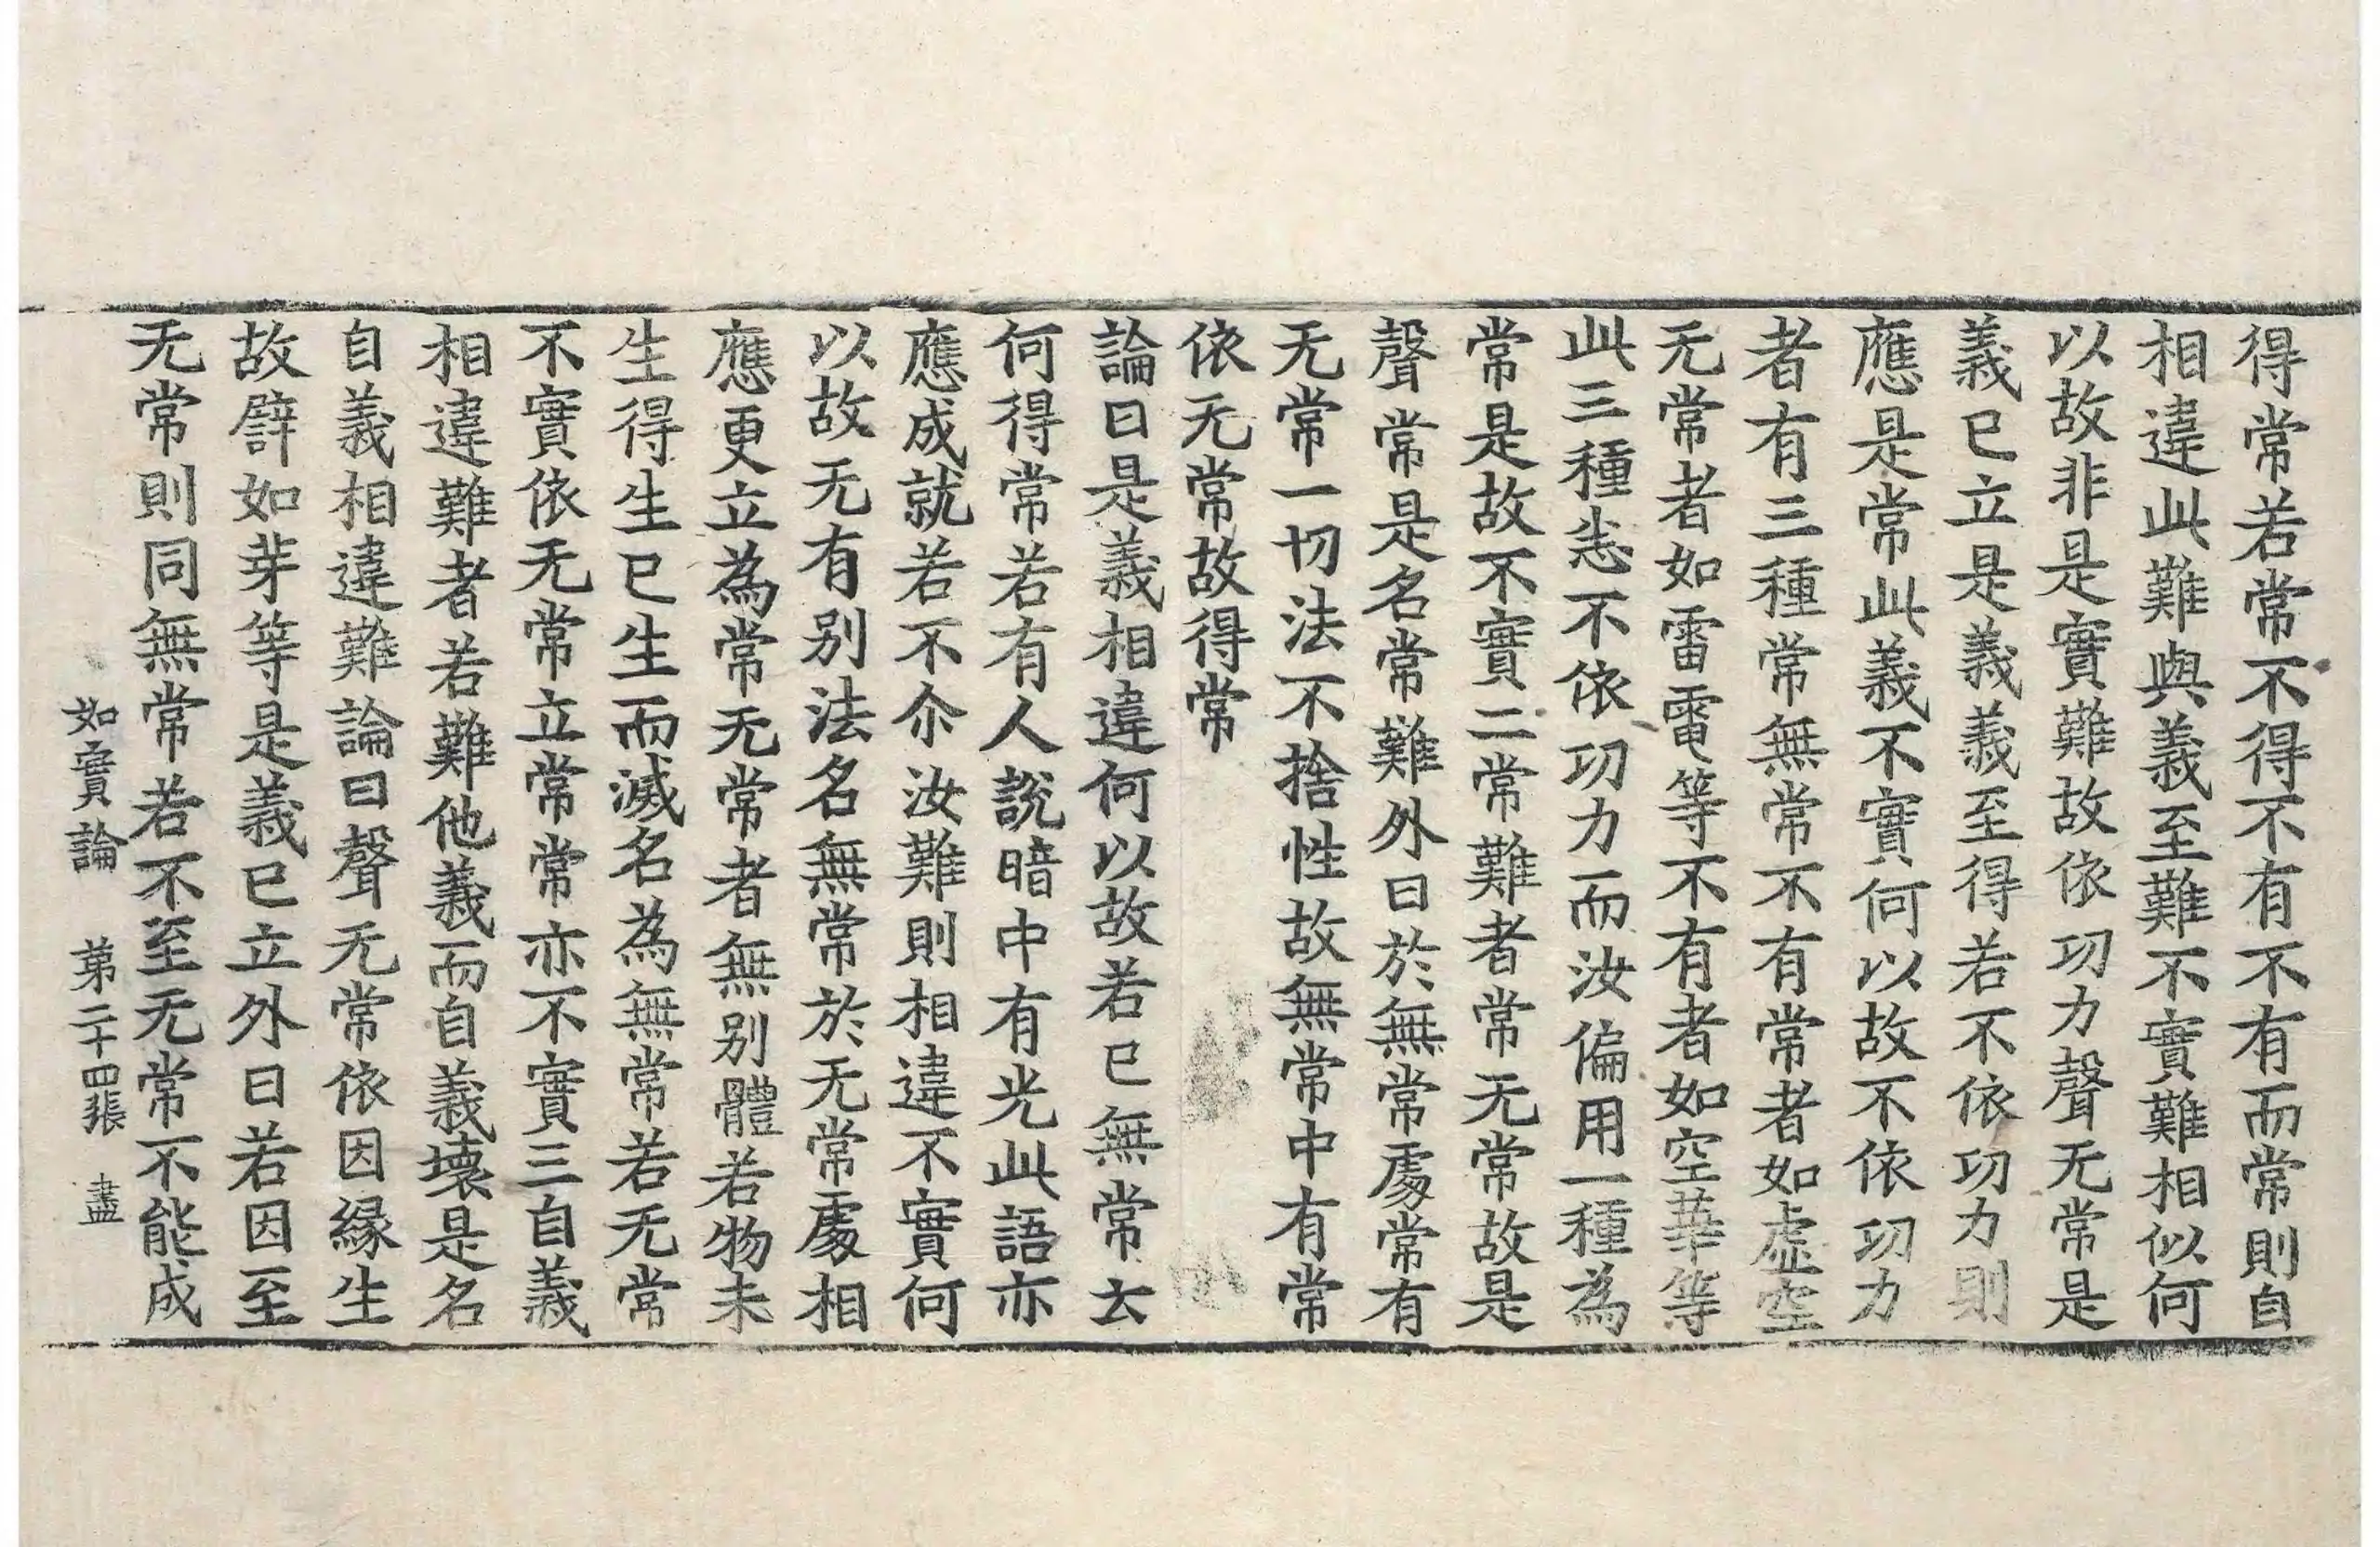 得常若常不得不有不有而常則自
相違此難與義至難不實難相似何
以故非是實難故依功力聲无常是
義已立是義義至得若不依功力則
應是常此義不實何以故不依功力
者有三種常無常不有常者如虛空
无常者如雷電等不有者如空華等
此三種悉不依功力而汝偏用一種為
常是故不實二常難者常无常故是
聲常是名常難外曰於無常處常有
无常一切法不捨性故無常中有常
依无常故得常
論曰是義相違何以故若已無常云
何得常若有人說暗中有光此語亦
應成就若不尒汝難則相違不實何
以故无有別法名無常於无常處相
應更立為常无常者無別體若物未
生得生已生而滅名為無常若无常
不實依无常立常常亦不實三自義
相違難者若難他義而自義壞是名
自義相違難論曰聲无常依因緣生
故譬如芽等是義已立外曰若因至
无常則同無常若不至无常不能成
如實論 第二十四張 盡